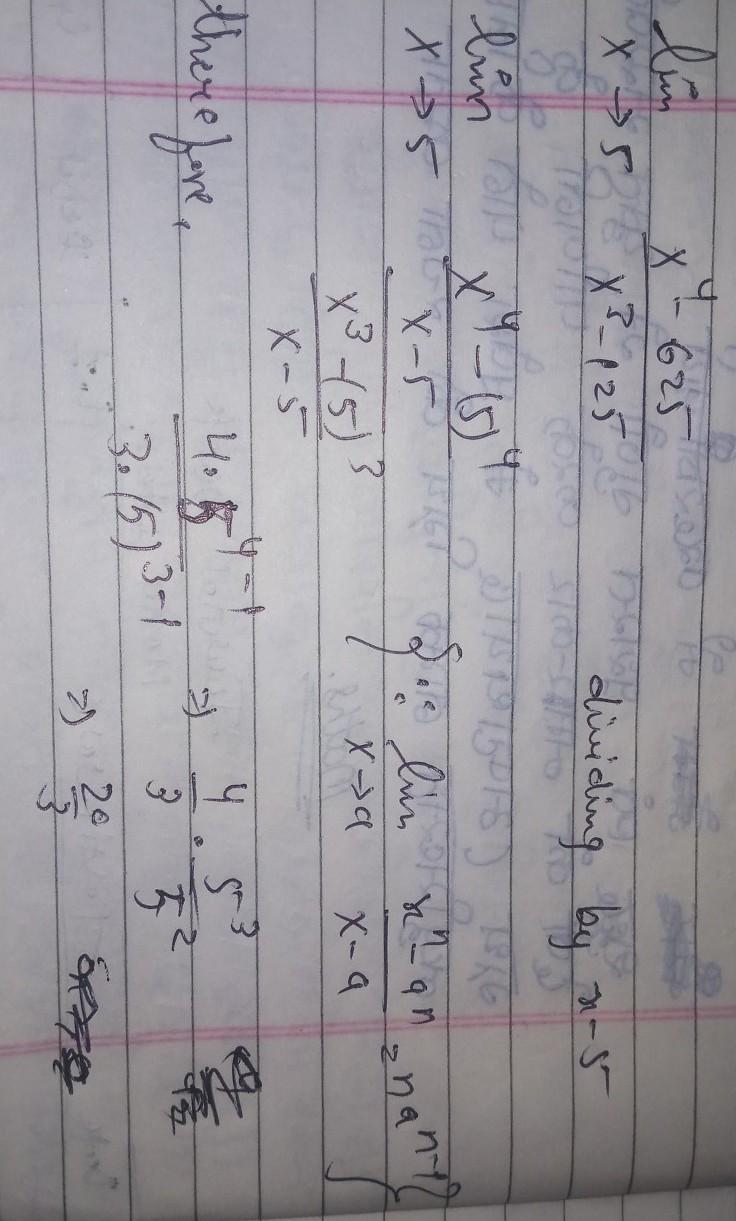 lim x→5 x⁴-625 / x³-125 dividing by x-5
lim x→5 (x⁴-(5)⁴ / x-5) / (x³-(5)³ / x-5) {∵ lim x→a xⁿ-aⁿ / x-a = naⁿ⁻¹}
therefore,
4.5⁴⁻¹ / 3.(5)³⁻¹ ⇒ 4/3 . 5³/5²
⇒ 20/3